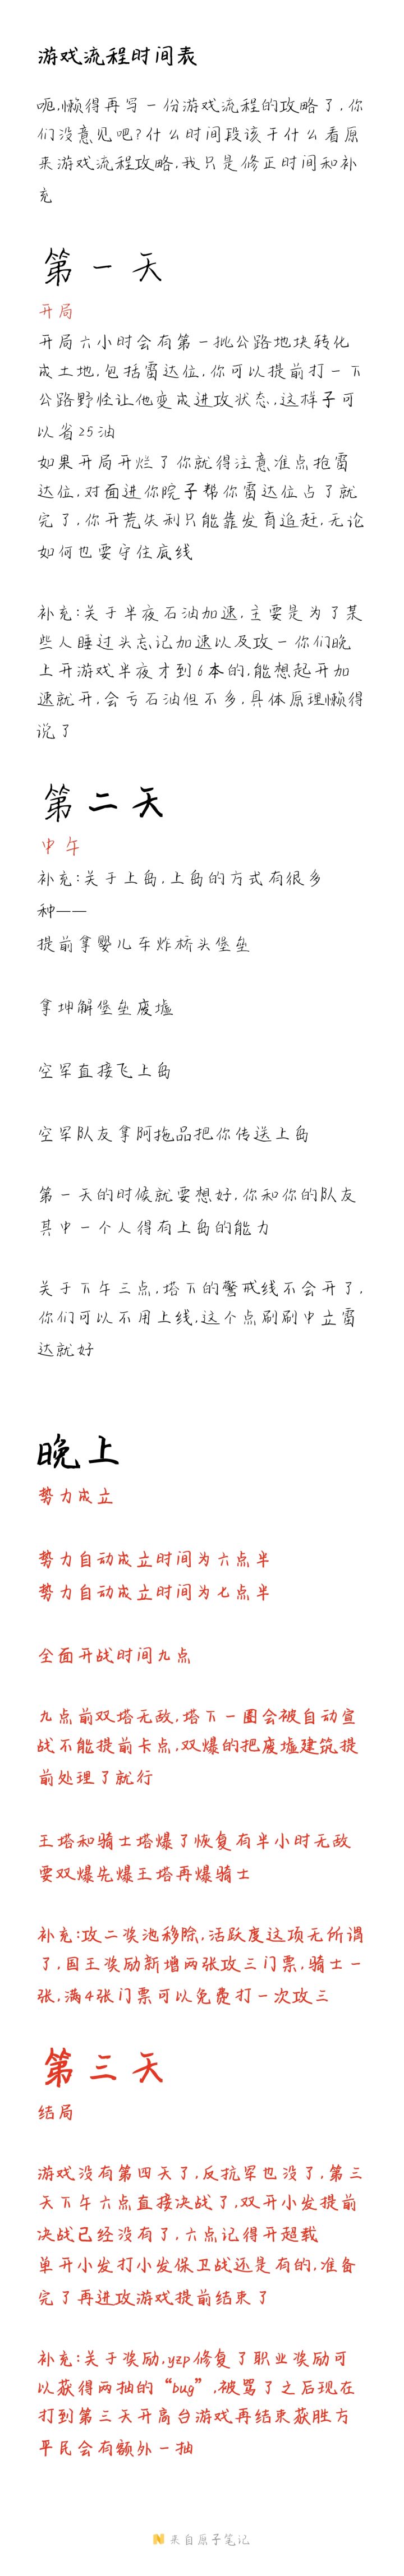 游戏流程时间表
呃,懒得再写一份游戏流程的攻略了,你
们没意见吧?什么时间段该干什么看原
来游戏流程攻略,我只是修正时间和补
充
第一天
开局
开局六小时会有第一批公路地块转化
成土地,包括雷达位,你可以提前打一下
公路野怪让他变成进攻状态,这样子可
以省25油
如果开局开烂了你就得注意准点抢雷
达位,对面进你院子帮你雷达位占了就
完了,你开荒失利只能靠发育追赶,无论
如何也要守住底线
补充:关于半夜石油加速,主要是为了某
些人睡过头忘记加速以及攻一你们晚
上开游戏半夜才到6本的,能想起开加
速就开,会亏石油但不多,具体原理懒得
说了
第二天
中午
补充:关于上岛,上岛的方式有很多
种——
提前拿婴儿车炸桥头堡垒
拿坤解堡垒废墟
空军直接飞上岛
空军队友拿阿拖品把你传送上岛
第一天的时候就要想好,你和你的队友
其中一个人得有上岛的能力
关于下午三点,塔下的警戒线不会开了,
你们可以不用上线,这个点刷刷中立雷
达就好
晚上
势力成立
势力自动成立时间为六点半
势力自动成立时间为七点半
全面开战时间九点
九点前双塔无敌,塔下一圈会被自动宣
战不能提前卡点,双爆的把废墟建筑提
前处理了就行
王塔和骑士塔爆了恢复有半小时无敌
要双爆先爆王塔再爆骑士
补充:攻二奖池移除,活跃度这项无所谓
了,国王奖励新增两张攻三门票,骑士一
张,满4张门票可以免费打一次攻三
第三天
结局
游戏没有第四天了,反抗军也没了,第三
天下午六点直接决战了,双开小发提前
决战已经没有了,六点记得开超载
单开小发打小发保卫战还是有的,准备
完了再进攻游戏提前结束了
补充:关于奖励,yzp修复了职业奖励可
以获得两抽的“bug”,被骂了之后现在
打到第三天开高台游戏再结束获胜方
平民会有额外一抽
来自原子笔记